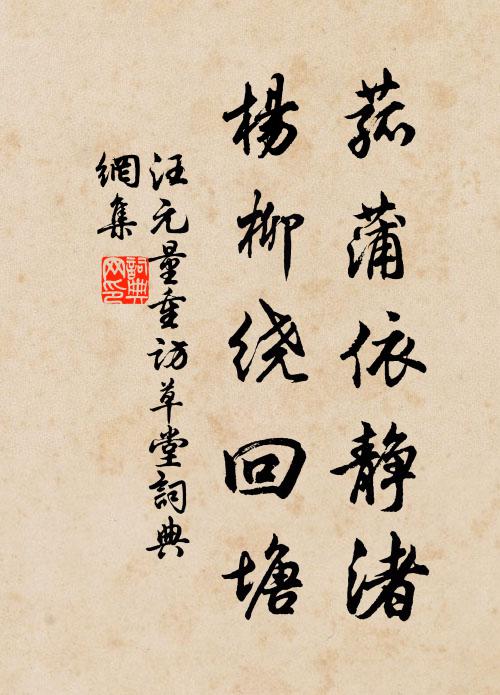 菰蒲依静渚
楊柳绕回塘
汪元量重访草堂詞典
網集
詞典
网印